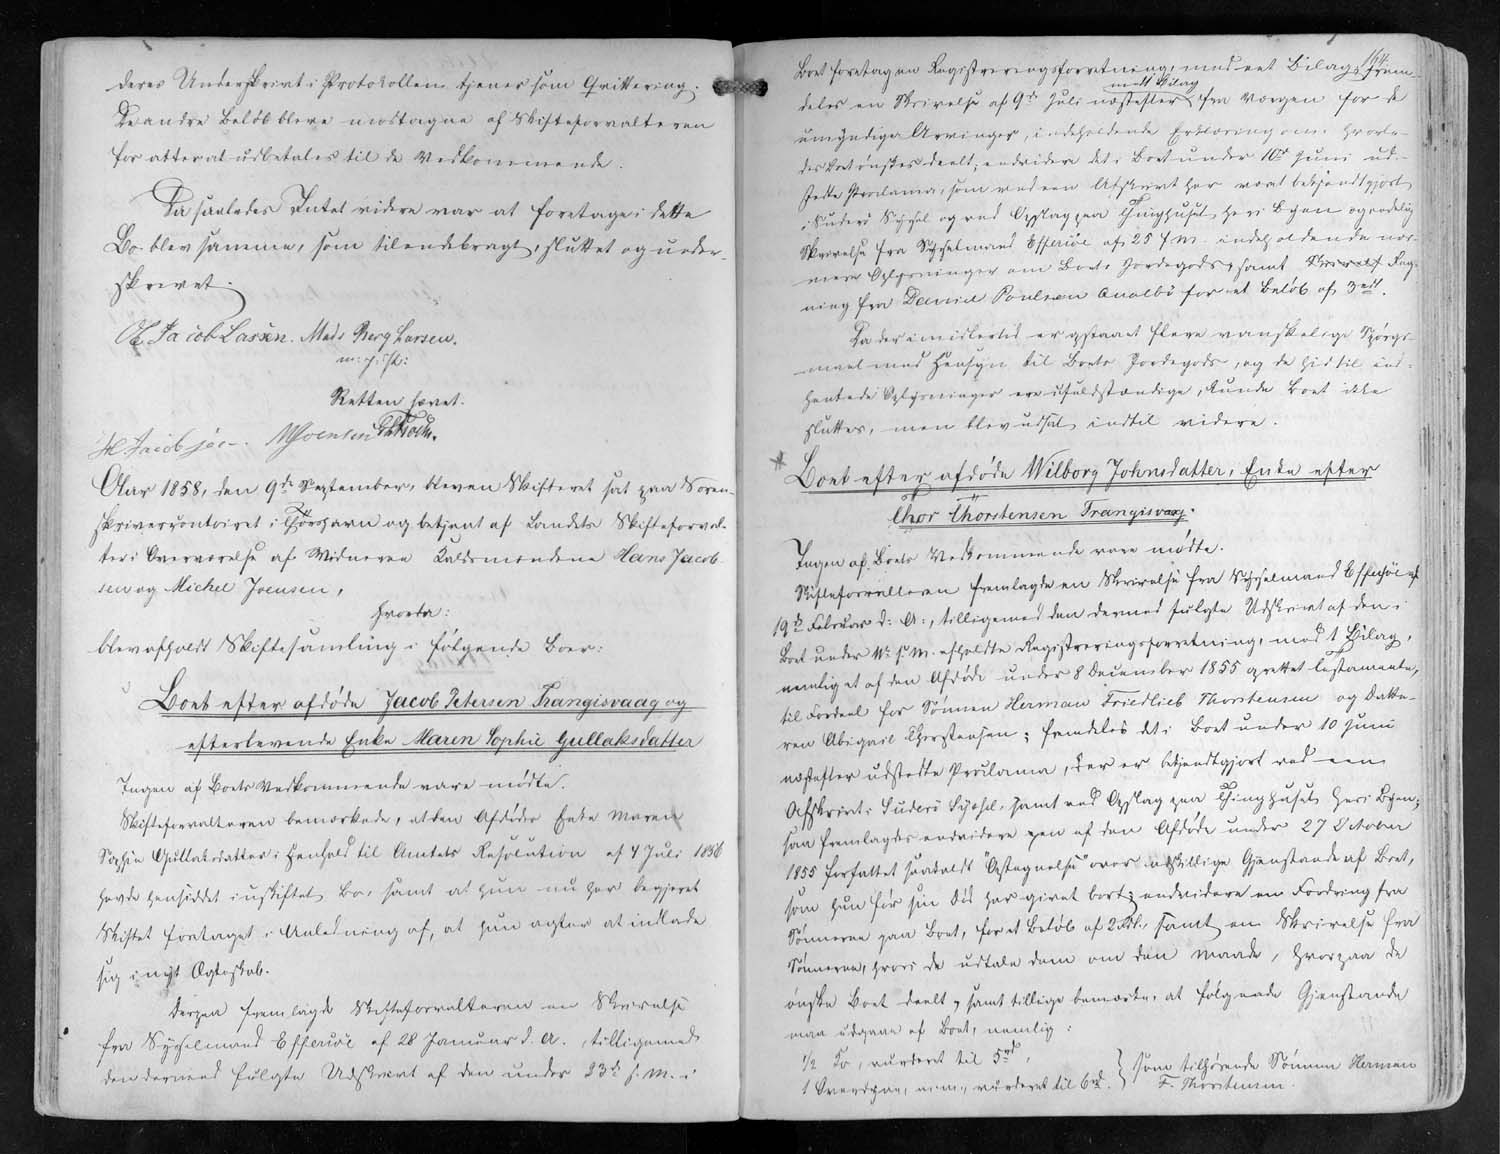 deres Underskrivt i Protokollen tjener som Qvittering.
De andre Beløb bleve modtagne af Skifteforvalteren
for atter at udbetales til de Vedkommende.
Da saaledes Intet videre var at foretage i dette
Bo blev samme, som tilendebragt, sluttet og under-
skrevet.
Jacob Larsen. Mads Berg Larsen.
m: f: P:
Retten hævet.
H Jacobsen. MJoensen
Aar 1858, den 9de September, bleven Skifteret sat paa Soren-
skrivercontoiret i Thorshavn og betjent af Landets Skifteforval-
ter i Overværelse af Vidnerne Kaldsmændene Hans Jacob-
sen og Michel Joensen,
Hvorda:
blev afholdt Skiftesamling i følgende Boer:
Boet efter afdøde Jacob Petersen Trangisvaag og
efterlevende Enke Maren Sophie Gullaksdatter
Ingen af Boets Vedkommende vare mødte.
Skifteforvalteren bemærkede, at den Afdødes Enke Maren
Sophie Gullaksdatter i Henhold til Amtets Resolution af 4 Juli 1856
havde hensiddet i uskiftet Bo, samt at hun nu har begjæret
Skiftet foretaget i Anledning af, at hun agter at indlade
sig i nyt Ægteskab.
Derpaa fremlagde Skifteforvalteren en Skrivelse
fra Sysselmand Effersøe af 28 Januar d. A., tilligemed
den dermed fulgte Udskrivt af den under 23de s. M. i
164.
Boet foretagen Registreringsforretning, med eet Bilag; Frem-
deles en Skrivelse af 9de Juli næstefter med Bilag fra Værgen for de
umyndige Arvinger, indeholdende Erklæring om, hvorle-
des Boet ønskes deelt; endvidere det i Boet under 10de Juni ud-
stedte Proclama, som ved en Afskrivt har været bekjendtgjort
i Suderø Syssel og ved Opslag paa Thinghuset her i Byen og endelig
Skrivelse fra Sysselmand Effersøe af 25 f. M. indeholdende nær-
mere Oplysninger om Boets Jordegods, samt Skrivelse Reg-
ning fra Daniel Poulsen Qualbø for et Beløb af 3 rdl.
Da der imidlertid er opstaaet flere vanskelige Spørgs-
maal med Hensyn til Boets Jordegods, og de hidtil ind-
hentede Oplysninger ere ufuldstændige, kunde Boet ikke
sluttes, men blev udsat indtil videre.
Boet efter afdøde Wilborg Johnsdatter, Enke efter
Thor Thorstensen Trangisvaag.
Ingen af Boets Vedkommende vare mødte.
Skifteforvalteren fremlagde en Skrivelse fra Sysselmand Effersøe af
19de Februar d: A:, tilligemed den dermed fulgte Udskrivt af den i
Boet under s. M. afholdte Registreringsforretning, med 1 Bilag,
nemlig et af den Afdøde under 8 December 1855 oprettet Testamente,
til Fordeel for Sønnen Herman Friedlieb Thorstensen og Datte-
ren Abigail Thorstensen; fremdeles det i Boet under 10 Juni
næstefter udstedte Proclama, der er bekjendtgjort ved een
Afskrivt i Suderø Syssel, samt ved Opslag paa Thinghuset her i Byen;
saa fremlagdes endvidere een af den Afdøde under 27 October
1855 forfattet saakaldt "Optegnelse" over adskillige Gjenstande af Boet,
som hun før sin Død har givet bort; endvidere en Fordring fra
Sønnerne paa Boet, for et Beløb af 2 rdl., samt en Skrivelse fra
Sønnerne, hvori de udtale dem om den Maade, hvorpaa de
ønske Boet deelt, samt tillige bemærke, at følgende Gjenstande
maa udgaae af Boet, nemlig:
1/2 Ko, vurderet til 5 rd,
1 m.m., vurderet til 6 rd. } som tilhørende Sønnen Herman
F. Thorstensen.